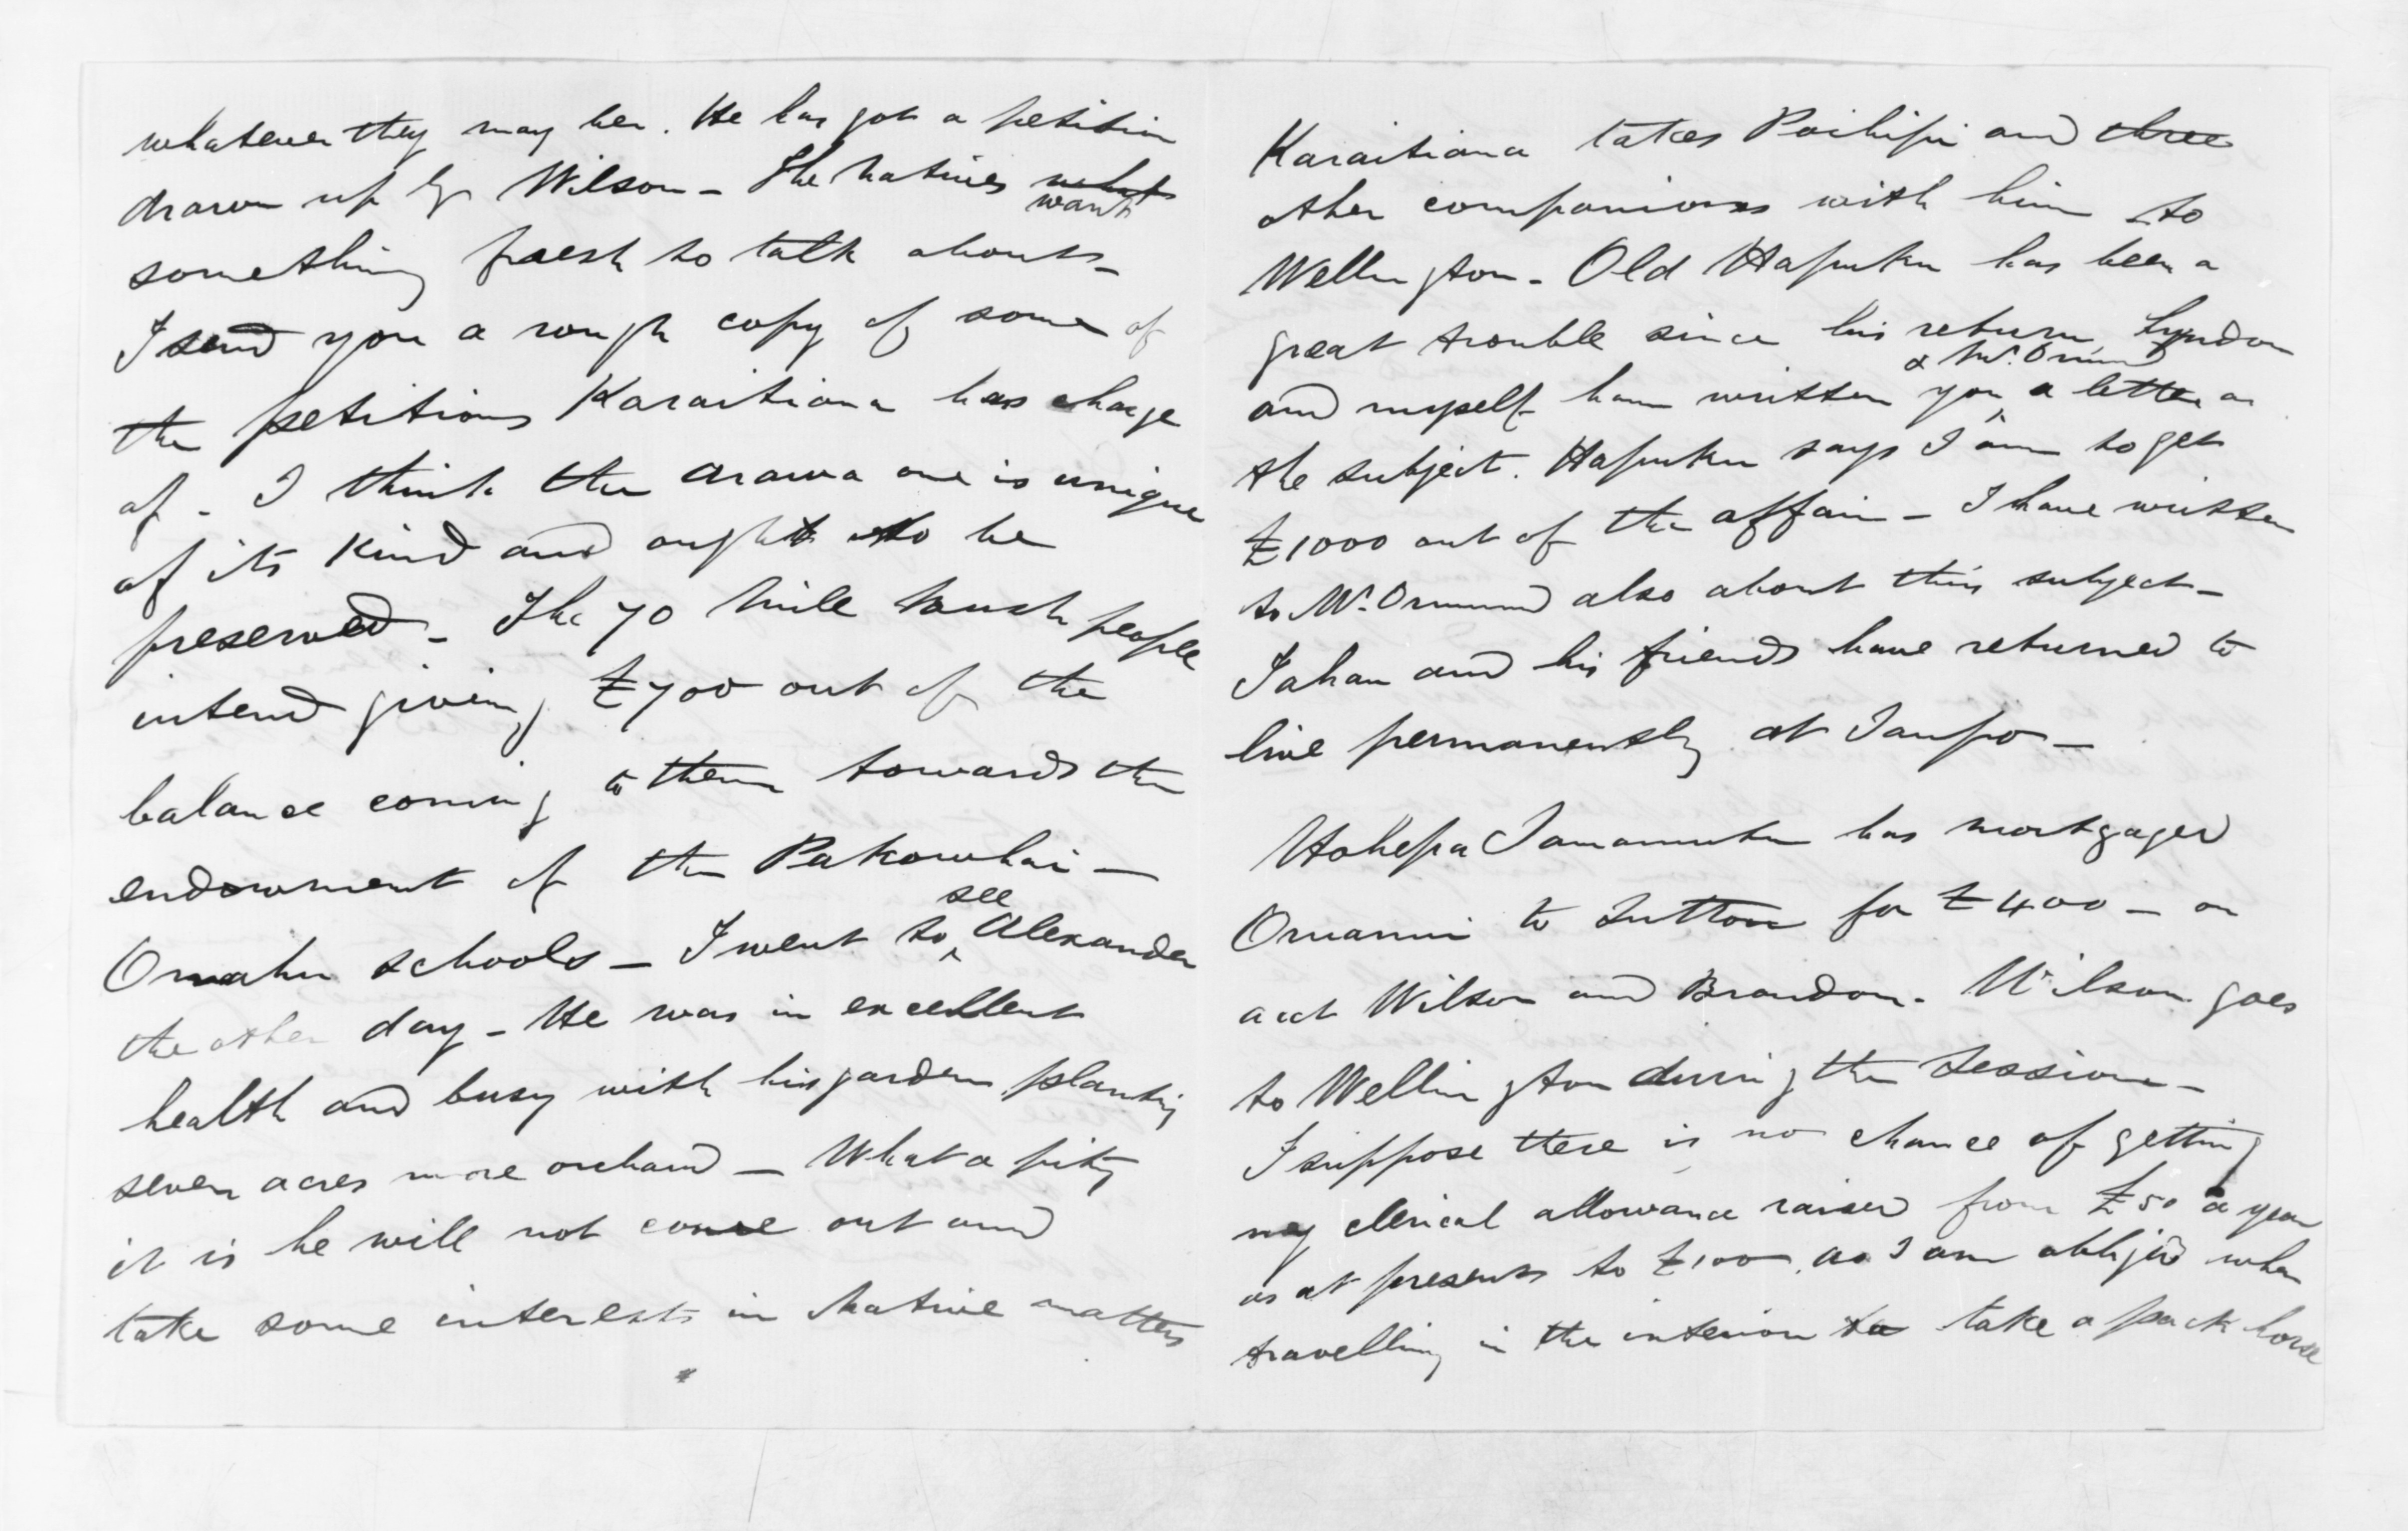 whatever they may be. He has got a petition
drawn up by Wilson – The Natives what want
something fresh to talk about –
I send you a rough copy of some of
the petitions Karaitiana has charge
of – I think the Arawa one is unique
of its kind and ought to be
preserved – The 70 Mile bush people
intend giving £700 out of the
balance coming to them towards the
endowment of the Pakowhai –
Omahu schools – I went to see Alexander
the other day – He was in excellent
health and busy with his garden planting
seven acres more orchard – What a pity
it is he will not come out and
take some interest in Native matters
Karaitiana takes Poihipi and three
other companions with him to
Wellington – Old Hapuku has been a
great trouble since his return Lyndon
and myself have written you & Mr. Ormond a letter on
the subject. Hapuku says I am to get
£1000 out of the affair – I have written
to Mr. Ormond also about this subject –
Tahau and his friends have returned to
live permanently at Taupo –
Hohepa Tamamutu has mortgaged
Oruanui to Sutton for £400 – on
acct Wilson and Brandon. Wilson goes
to Wellington during the Session –
I suppose there is no chance of getting
my clerical allowance raised from £50 a year
as at present to £100 as I am obliged when
travelling in the interior to take a pack horse